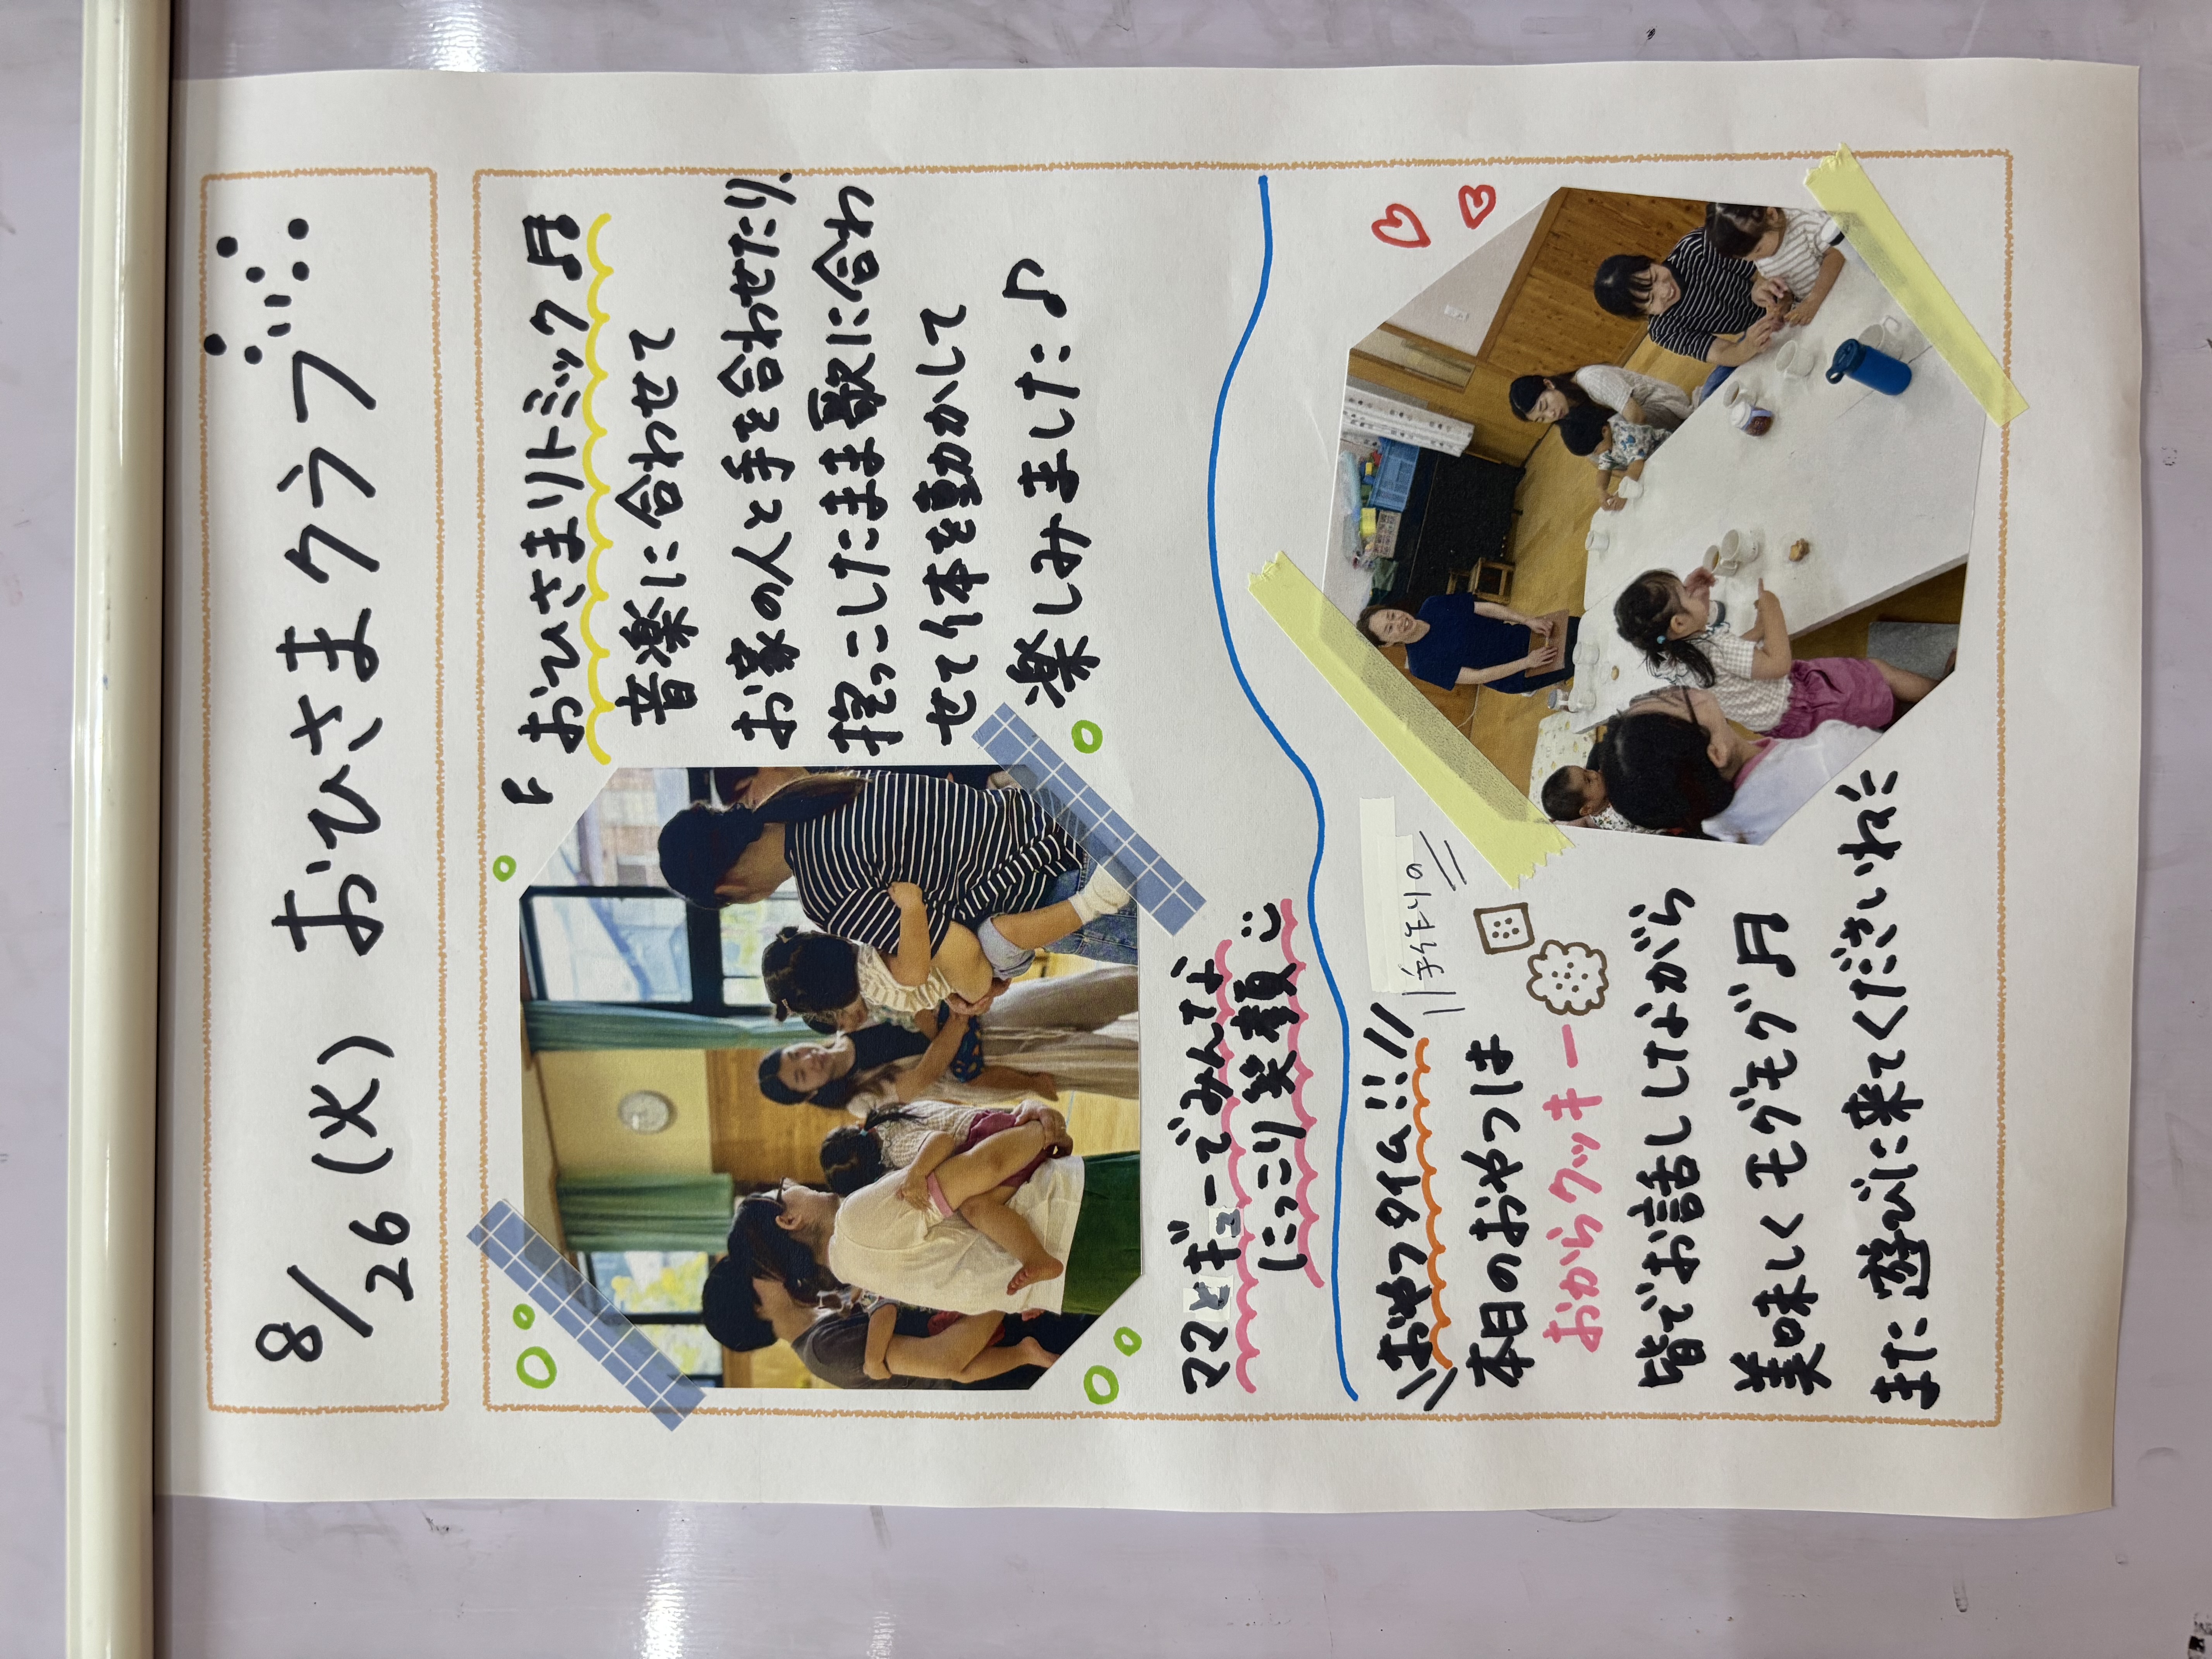 8/26 (火) おひさまクラブ
おひさまリトミック♬
音楽に合わせて
お家の人と手を合わせたり、
抱っこしたまま歌に合わ
せて体を動かして
楽しみました♪
ママとギューでみんな
にっこり笑顔
\\おやつタイム!!//
\\手作りの//
本日のおやつは
おからクッキー
皆でお話ししながら
美味しくモグモグ♬
また遊びに来てくださいね